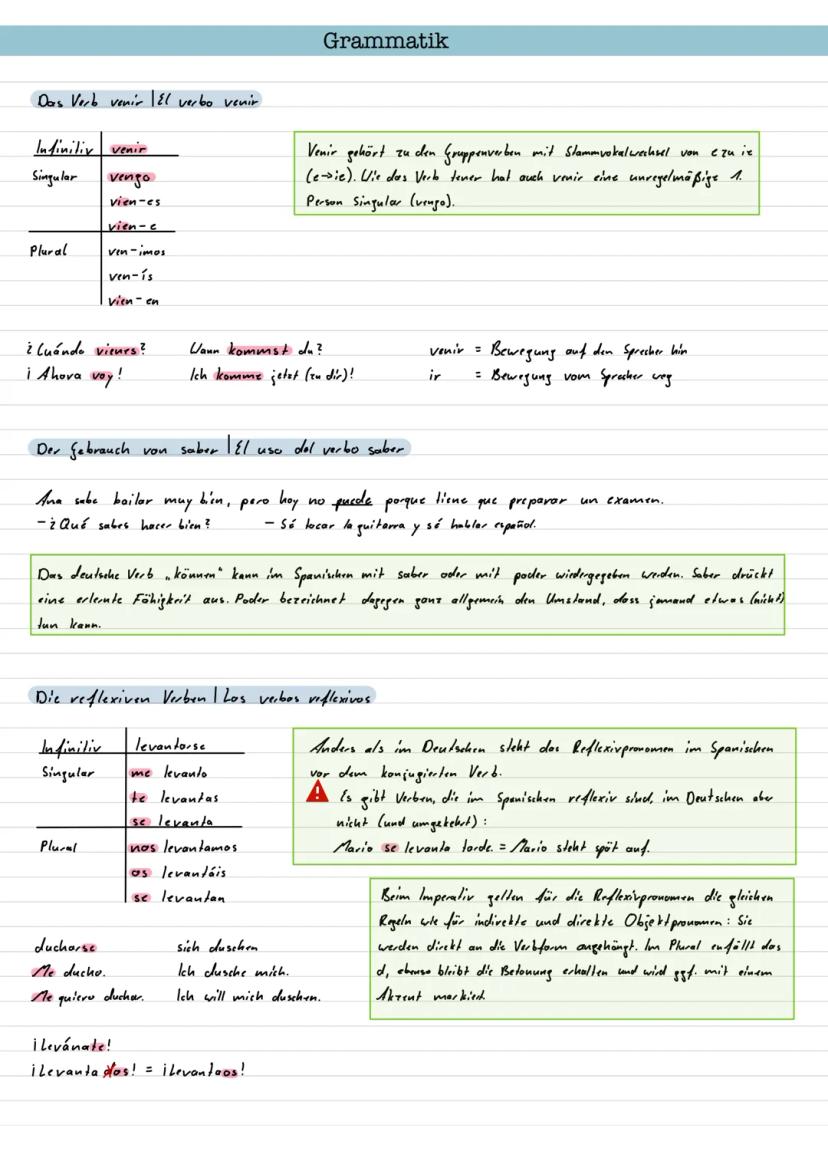 Grammatik
Das Verb venir | El verbo venir
Infinitiv venir
Singular vengo
vien-es
vien-e
Plural ven-imos
ven-ís
vien-en
Venir gehört zu den Gruppenverben mit Stammvokalwechsel von e zu ie
(e→ie). Wie das Verb tener hat auch venir eine unregelmäßige 1.
Person Singular (vengo).
¿Cuándo vienes? Wann kommst du? venir = Bewegung auf den Sprecher hin
¡Ahora voy! Ich komme jetzt (zu dir)! ir = Bewegung vom Sprecher weg
Der Gebrauch von saber | El uso del verbo saber
Ana sabe bailar muy bien, pero hoy no puede porque tiene que preparar un examen.
-¿Qué sabes hacer bien? - Sé tocar la guitarra y sé hablar español.
Das deutsche Verb „können" kann im Spanischen mit saber oder mit poder wiedergegeben werden. Saber drückt
eine erlernte Fähigkeit aus. Poder bezeichnet dagegen ganz allgemein den Umstand, dass jemand etwas (nicht)
tun kann.
Die reflexiven Verben | Los verbos reflexivos
Infinitiv levantarse
Singular me levanto
te levantas
se levanta
Plural nos levantamos
os levantáis
se levantan
Anders als im Deutschen steht das Reflexivpronomen im Spanischen
vor dem konjugierten Verb.
Es gibt Verben, die im Spanischen reflexiv sind, im Deutschen aber
nicht (und umgekehrt):
Mario se levanta tarde. = Mario steht spät auf.
Beim Imperativ gelten für die Reflexivpronomen die gleichen
Regeln wie für indirekte und direkte Objektpronomen: Sie
werden direkt an die Verbform angehängt. Im Plural entfällt das
d, ebenso bleibt die Betonung erhalten und wird ggf. mit einem
Akzent markiert.
ducharse sich duschen
Me ducho. Ich dusche mich.
Me quiero duchar. Ich will mich duschen.
¡Levánate!
¡Levanta dos! = ¡Levantaos!